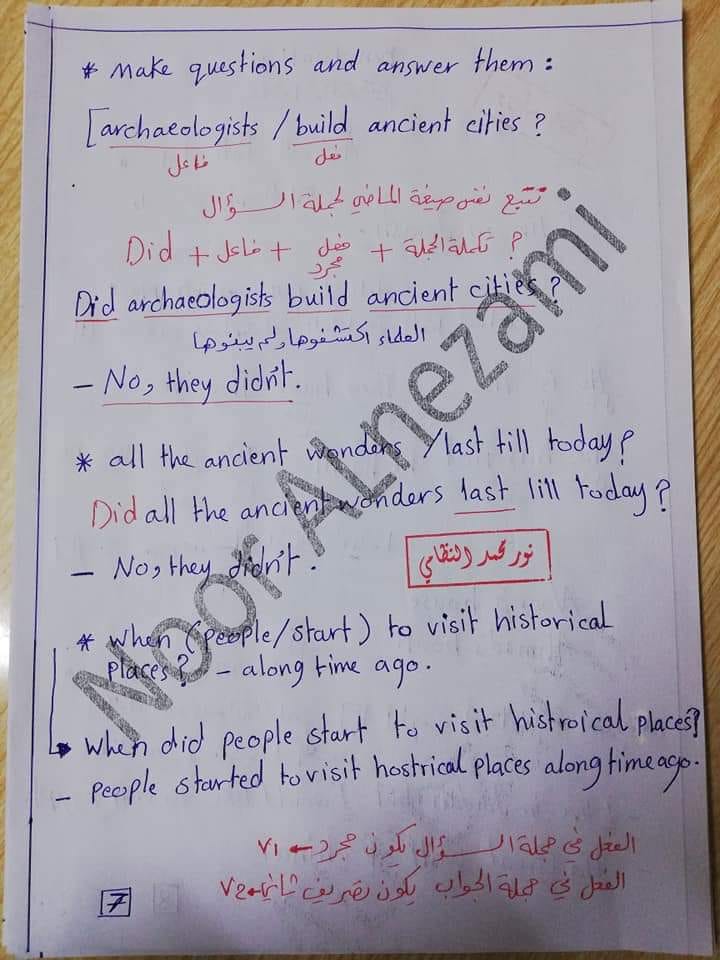 * Make questions and answer them :
[archaeologists / build ancient cities ?
فاعل فعل
تتبع نفس صيغة الماضي لجملة السؤال
Did + فاعل + فعل مجرد + تكملة الجملة ?
Did archaeologists build ancient cities ?
العلماء اكتشفوها ولم يبنوها
- No, they didn't.
* all the ancient wonders /last till today?
Did all the ancient wonders last lill today?
- No, they didn't.
نور محمد النظامي
* when (people/start) to visit historical
places? - along time ago.
when did people start to visit histroical places?
- people started to visit hostrical places along time ago.
الفعل في جملة السؤال يكون مجرد ← V1
الفعل في جملة الجواب يكون تصريف ثاني ← V2
7
Noor ALnezami